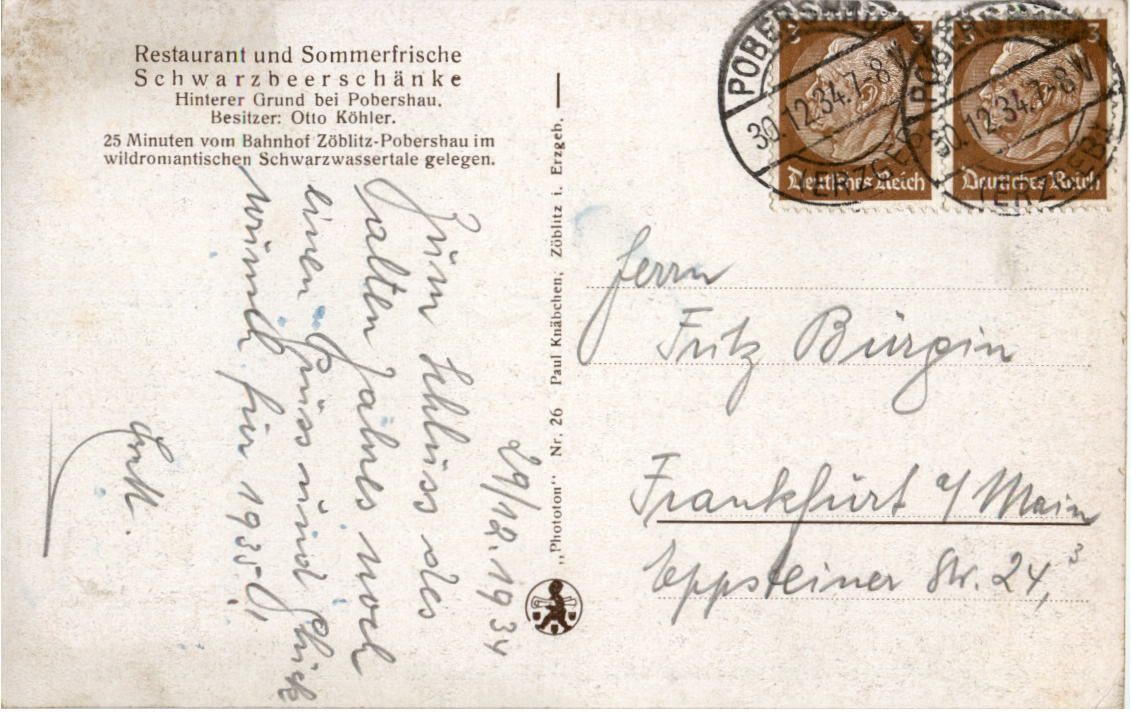 Restaurant und Sommerfrische
Schwarzbeerschänke
Hinterer Grund bei Pobershau.
Besitzer: Otto Köhler.
25 Minuten vom Bahnhof Zöblitz-Pobershau im
wildromantischen Schwarzwassertale gelegen.
29/12.1934
Zum Schluss des
alten Jahres noch
einen Gruss und Glück
wunsch für 1935!
„Phototon“ Nr. 26 Paul Knäbchen, Zöblitz i. Erzgeb.
POBERSHAU
30.12.34.7-8 V
(ERZGEB)
POBERSHAU
30.12.34.7-8 V
(ERZGEB)
3 3
Deutsches Reich
3 3
Deutsches Reich
Herrn
Fritz Bürgin
Frankfurt a/Main
Eppsteiner Str. 24,3